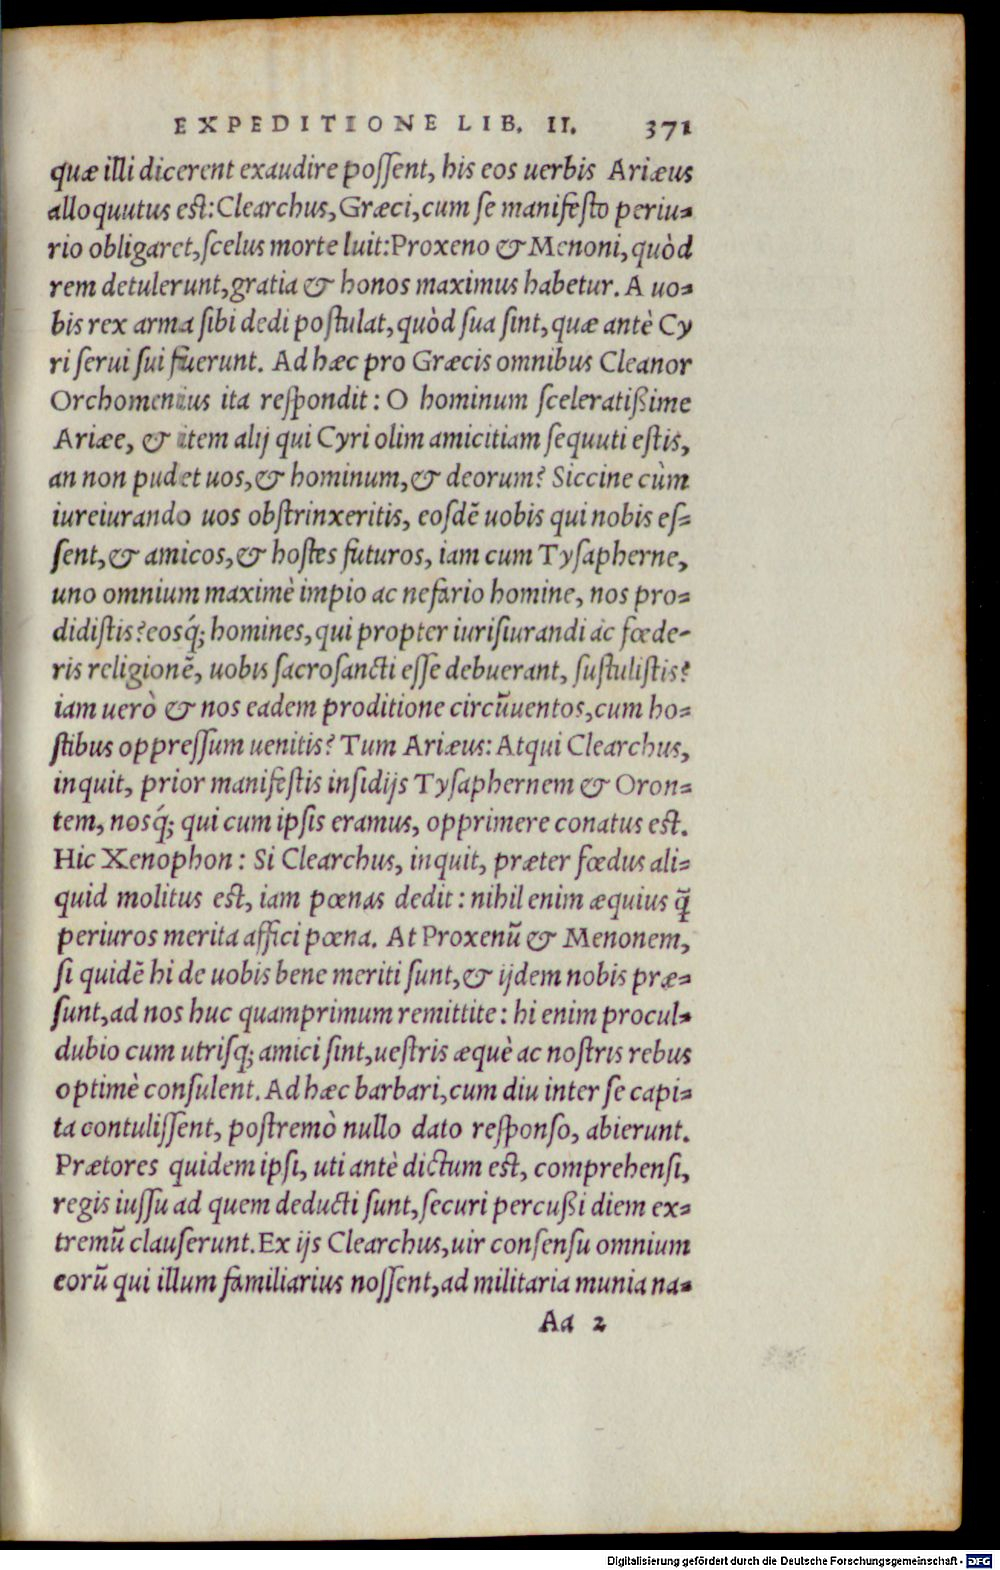 EXPEDITIONE LIB. II. 371
quæ illi dicerent exaudire possent, his eos uerbis Ariæus
alloquutus est: Clearchus, Græci, cum se manifesto periu-
rio obligaret, scelus morte luit: Proxeno & Menoni, quòd
rem detulerunt, gratia & honos maximus habetur. A uo-
bis rex arma sibi dedi postulat, quòd sua sint, quæ antè Cy
ri serui sui fuerunt. Ad hæc pro Græcis omnibus Cleanor
Orchomenius ita respondit: O hominum sceleratißime
Ariæe, & item alij qui Cyri olim amicitiam sequuti estis,
an non pudet uos, & hominum, & deorum? Siccine cùm
iureiurando uos obstrinxeritis, eosdẽ uobis qui nobis es-
sent, & amicos, & hostes futuros, iam cum Tysapherne,
uno omnium maximè impio ac nefario homine, nos pro-
didistis? eosq́; homines, qui propter iurisiurandi ac fœde-
ris religionẽ, uobis sacrosancti esse debuerant, sustulistis?
iam uerò & nos eadem proditione circũuentos, cum ho-
stibus oppressum uenitis? Tum Ariæus: Atqui Clearchus,
inquit, prior manifestis insidijs Tysaphernem & Oron-
tem, nosq́; qui cum ipsis eramus, opprimere conatus est.
Hic Xenophon: Si Clearchus, inquit, præter fœdus ali-
quid molitus est, iam pœnas dedit: nihil enim æquius q̃
periuros merita affici pœna. At Proxenũ & Menonem,
si quidẽ hi de uobis bene meriti sunt, & ijdem nobis præ-
sunt, ad nos huc quamprimum remittite: hi enim procul-
dubio cum utrisq; amici sint, uestris æquè ac nostris rebus
optimè consulent. Ad hæc barbari, cum diu inter se capi-
ta contulissent, postremò nullo dato responso, abierunt.
Prætores quidem ipsi, uti antè dictum est, comprehensi,
regis iussu ad quem deducti sunt, securi percußi diem ex-
tremũ clauserunt. Ex ijs Clearchus, uir consensu omnium
eorũ qui illum familiarius nossent, ad militaria munia na-
Aa 2
Digitalisierung gefördert durch die Deutsche Forschungsgemeinschaft - DFG